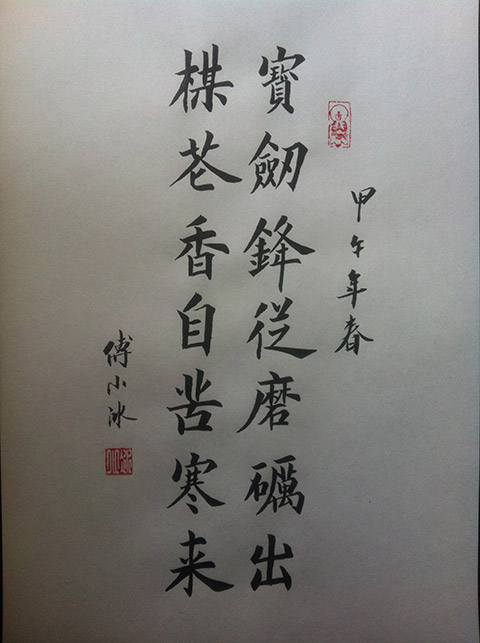 甲午年春
寶劒鋒従磨礪出
楳花香自苦寒来
傅小冰